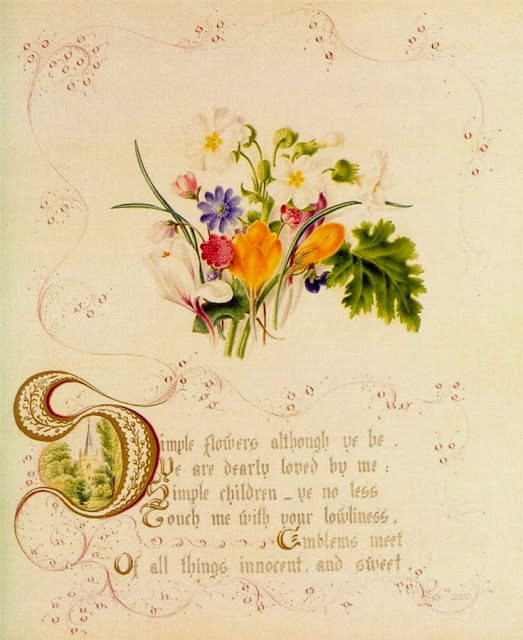 Simple flowers although ye be ,
Ye are dearly loved by me ;
Simple children _ ye no less
Touch me with your lowliness ,
Emblems meet
Of all things innocent, and sweet